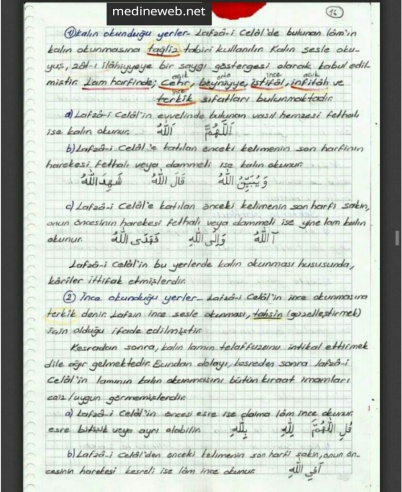 medineweb.net
14
① Kalın okunduğu yerler- Lafzâ-i Celâl'de bulunan lâm'ın
kalın okunmasına tağliz tabiri kullanılır. Kalın sesle oku-
yuş, zât-ı ilâhiyyeye bir saygı göstergesi olarak kabul edil-
miştir. Lam harfinde; Cehr, beyniyye, istifâl, infitâh ve
terkik sıfatları bulunmaktadır.
a) Lafzâ-i Celâl'in evvelinde bulunan vasıl hemzesi fethalı
ise kalın okunur. اَللّٰهُ اَللّٰهُمَّ
b) Lafzâ-i Celâl'e katılan önceki kelimenin son harfinin
harekesi fethalı veya dammeli ise kalın okunur.
شَهِدَ اللّٰهُ قَالَ اللّٰهُ وَيُبَيِّنُ اللّٰهُ
c) Lafzâ-i Celâl'e katılan önceki kelimenin son harfi sakin,
onun öncesinin harekesi fethalı veya dammeli ise yine lam kalın
okunur. هَدَى اللّٰهُ وَاِلَى اللّٰهِ آللّٰهُ
Lafzâ-i Celâl'in bu yerlerde kalın okunması hususunda,
kâriler ittifak etmişlerdir.
② İnce okunduğu yerler- Lafzâ-i Celâl'in ince okunmasına
terkik denir. Lafzın ince sesle okunması, tahsin (güzelleştirmek)
için olduğu ifade edilmiştir.
Kesradan sonra, kalın lamın telaffuzunu intikal ettirmek
dile ağır gelmektedir. Bundan dolayı, kesreden sonra Lafzâ-i
Celâl'in lamının kalın okunmasını bütün kıraat imamları
caiz/uygun görmemişlerdir.
a) Lafzâ-i Celâl'in öncesi esre ise daima lâm ince okunur.
esre bitişik veya ayrı olabilir. بِاللّٰهِ لِلّٰهِ قُلِ اللّٰهُمَّ
b) Lafzâ-i Celâl'den önceki kelimenin son harfi sakin, onun ön-
cesinin harekesi kesreli ise lâm ince okunur. اَفِي اللّٰهِ